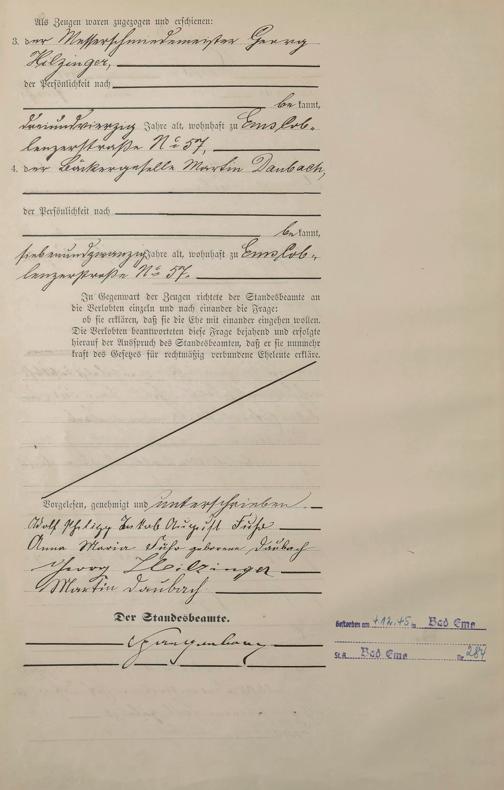 Als Zeugen waren zugezogen und erschienen:
3. der Messerschmiedemeister Georg
Hilzinger,
der Persönlichkeit nach
bekannt,
dreiundvierzig Jahre alt, wohnhaft zu Ems, Cob-
lenzerstraße No 57,
4. der Bäckergeselle Martin Daubach,
der Persönlichkeit nach
bekannt,
siebenundzwanzig Jahre alt, wohnhaft zu Ems, Cob-
lenzerstraße No 57.
In Gegenwart der Zeugen richtete der Standesbeamte an
die Verlobten einzeln und nach einander die Frage:
ob sie erklären, daß sie die Ehe mit einander eingehen wollen.
Die Verlobten beantworteten diese Frage bejahend und erfolgte
hierauf der Ausspruch des Standesbeamten, daß er sie nunmehr
kraft des Gesetzes für rechtmäßig verbundene Eheleute erkläre.
Vorgelesen, genehmigt und unterschrieben.
Adolf Philipp Jakob August Fuhr
Anna Maria Fuhr geborene Daubach
Georg Hilzinger
Martin Daubach
Der Standesbeamte.
Gestorben am 4.12.45 in Bad Ems
St.A. Bad Ems Nr 284